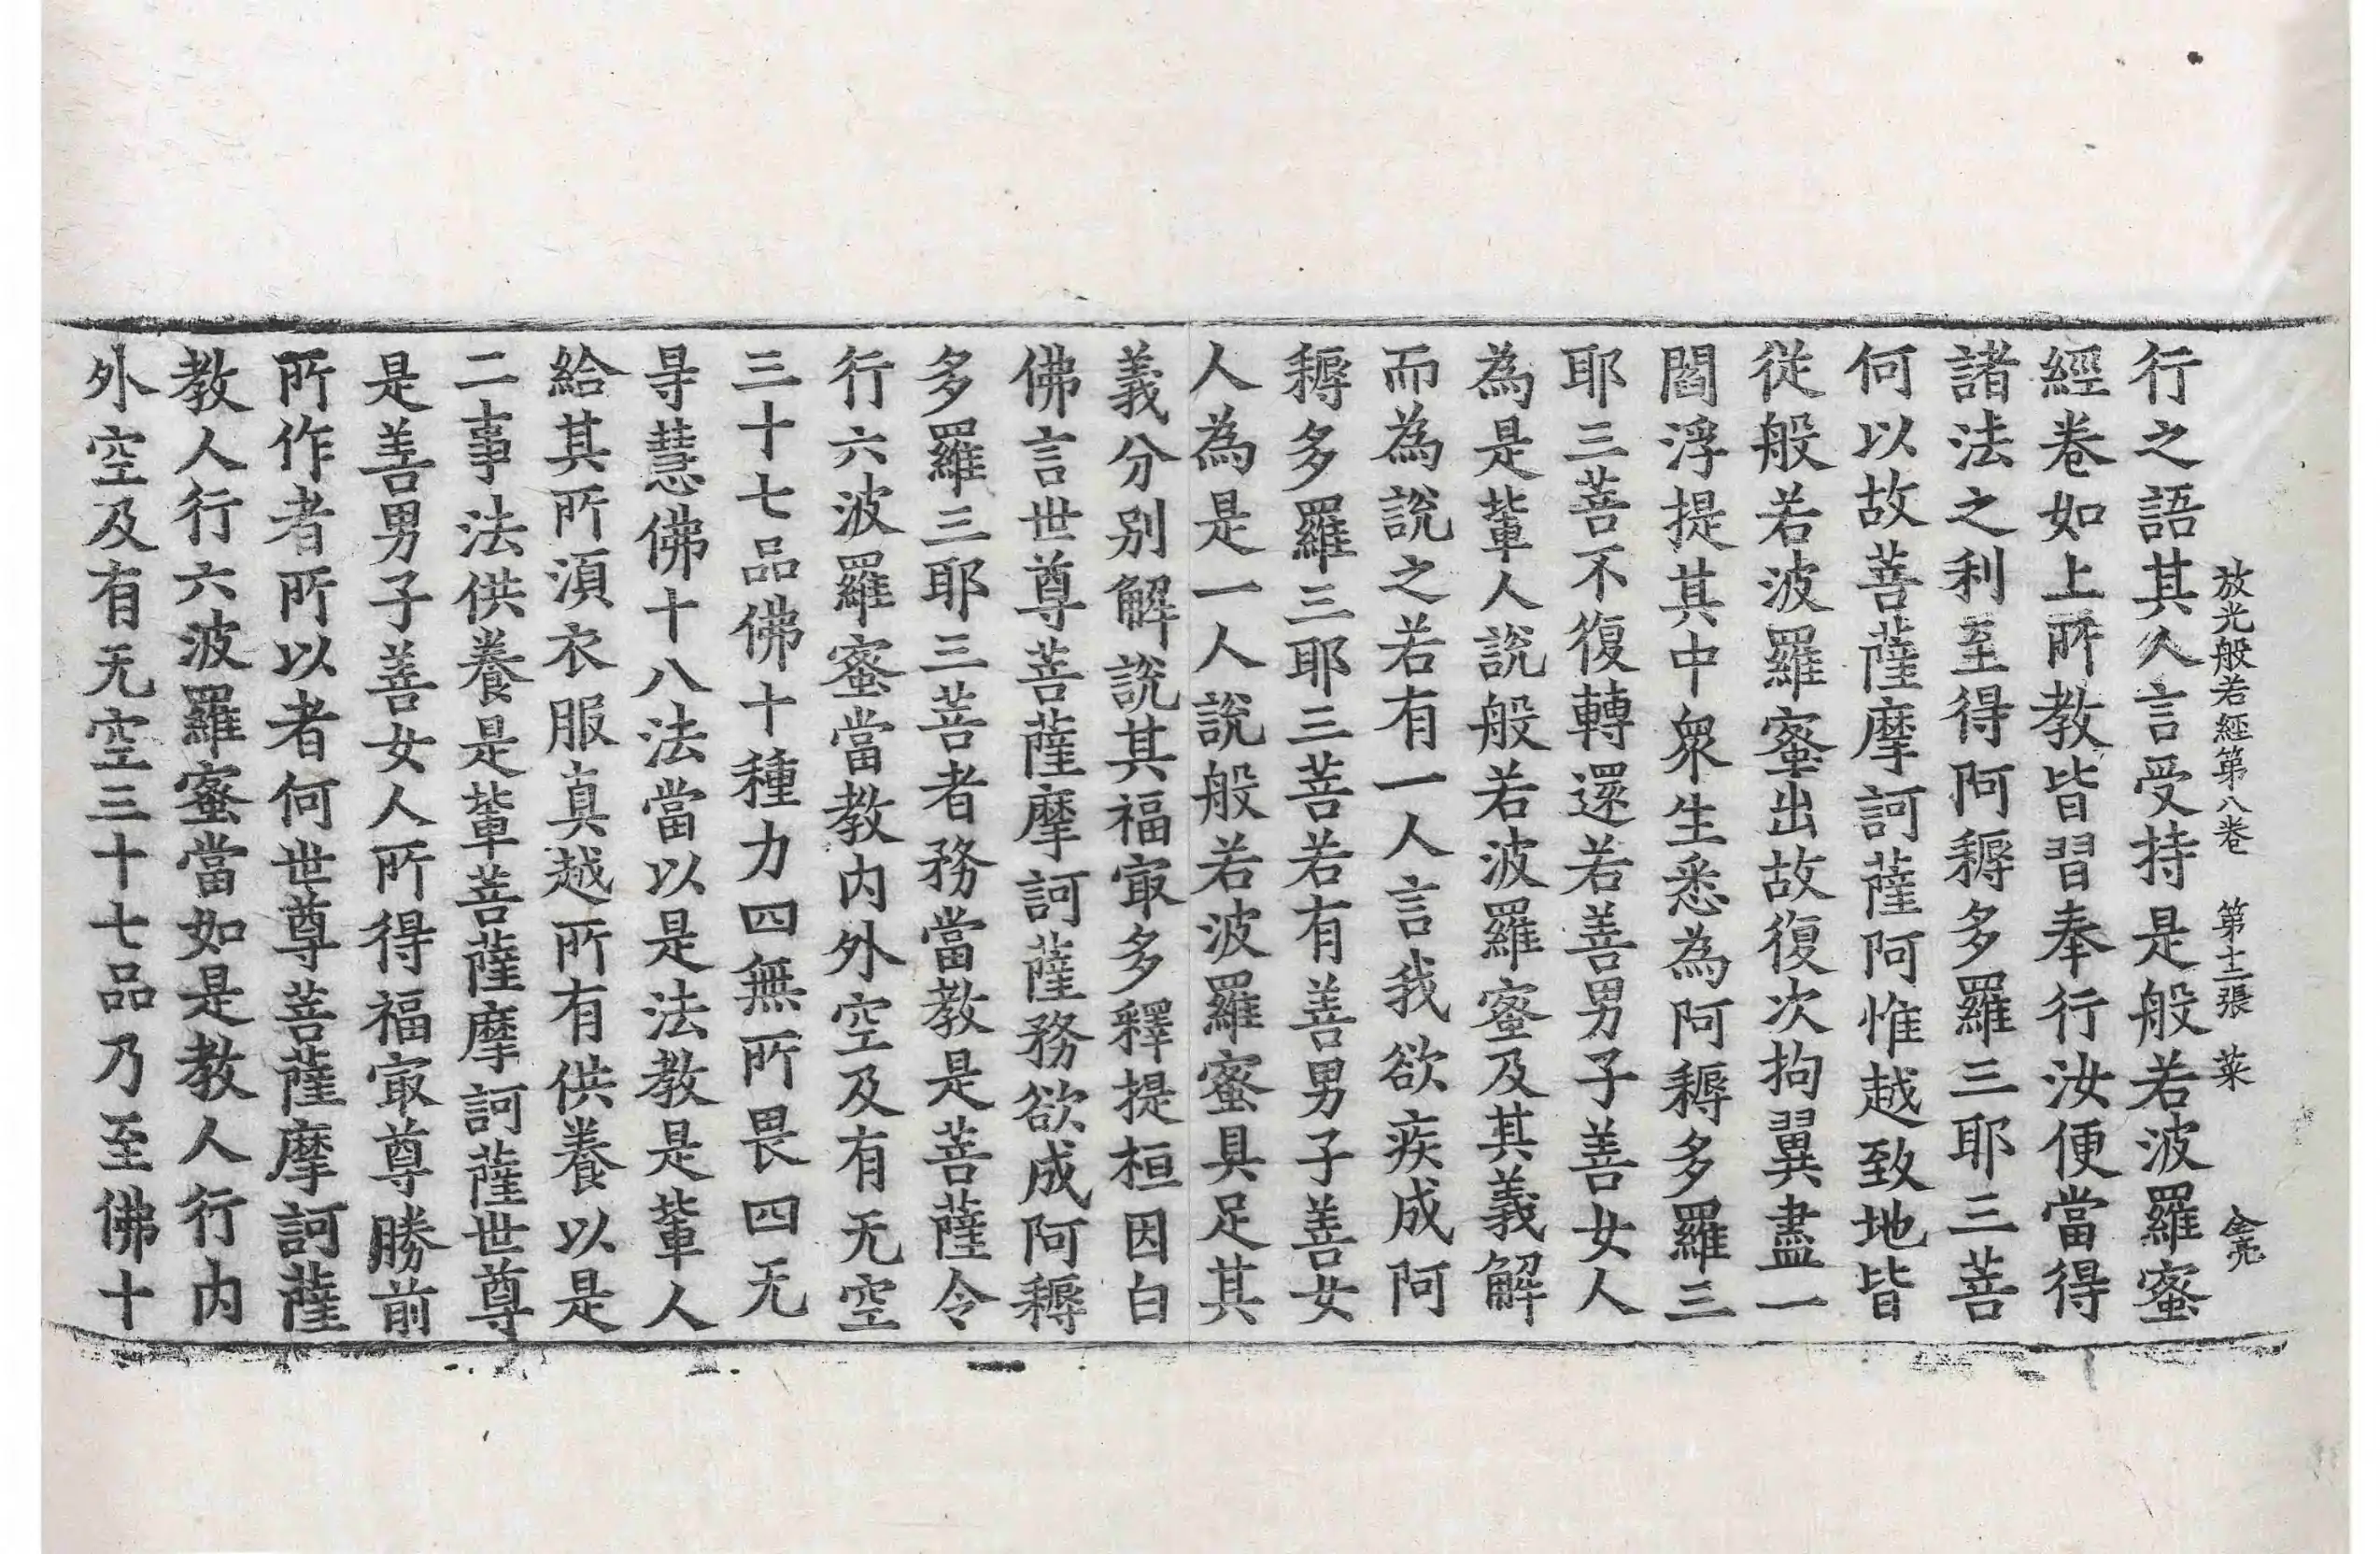 放光般若經第八卷 第十二張 菜 金亮
行之語其人言受持是般若波羅蜜
經卷如上所教皆習奉行汝便當得
諸法之利至得阿耨多羅三耶三菩
何以故菩薩摩訶薩阿惟越致地皆
從般若波羅蜜出故復次拘翼盡一
閻浮提其中衆生悉為阿耨多羅三
耶三菩不復轉還若善男子善女人
為是輩人說般若波羅蜜及其義解
而為說之若有一人言我欲疾成阿
耨多羅三耶三菩若有善男子善女
人為是一人說般若波羅蜜具足其
義分別解說其福㝡多釋提桓因白
佛言世尊菩薩摩訶薩務欲成阿耨
多羅三耶三菩者務當教是菩薩令
行六波羅蜜當教內外空及有无空
三十七品佛十種力四無所畏四无
㝵慧佛十八法當以是法教是輩人
給其所湏衣服真越所有供養以是
二事法供養是輩菩薩摩訶薩世尊
是善男子善女人所得福㝡尊勝前
所作者所以者何世尊菩薩摩訶薩
教人行六波羅蜜當如是教人行內
外空及有无空三十七品乃至佛十